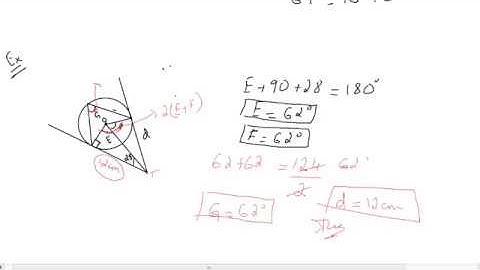 Ex
2(E+F)
G
E
d
28
12cm
T
E+90+28 = 180°
E = 62°
F = 62°
62+62 = 124 62°
2
G = 62°
d = 12cm